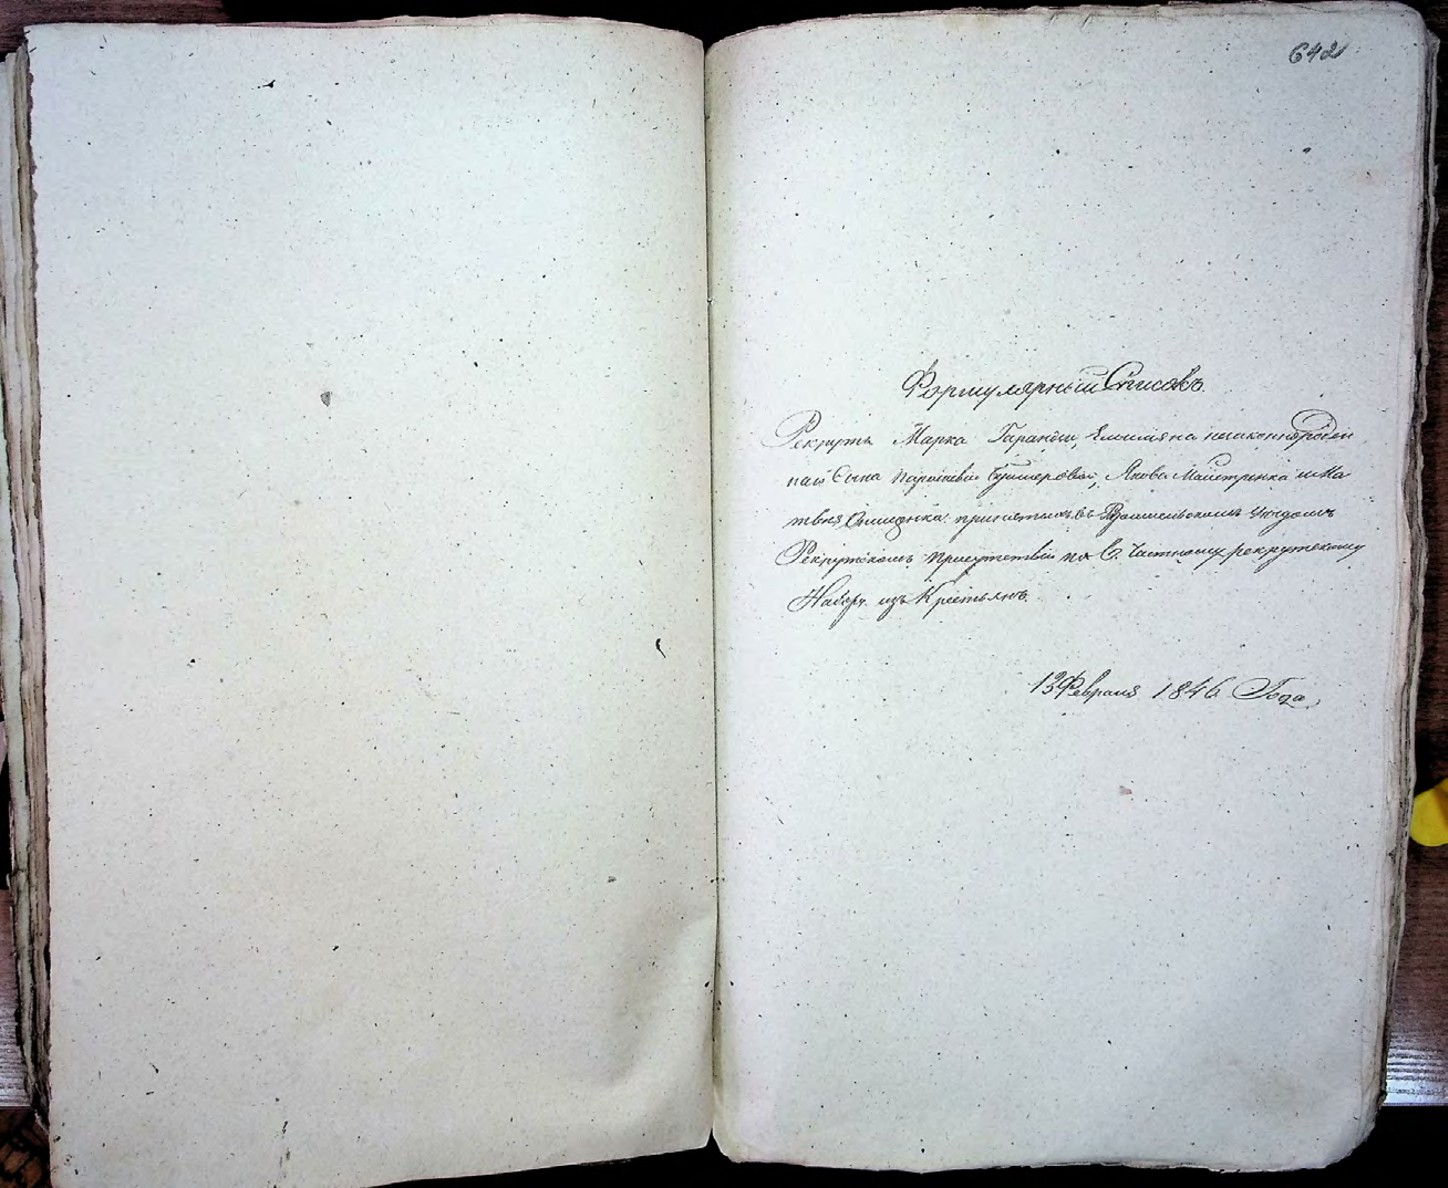 642
Формулярный Списокъ
Рекрутъ Марка Гаранди, Емелияна незаконнорожден
наго Сына Парасковіи, Якова Майстренка и Ма
твея принятыхъ въ Уездномъ
Рекрутскомъ Присутствіи по 6. Частному рекрутскому
Набору изъ Крестьянъ.
13 Февраля 1846 Года